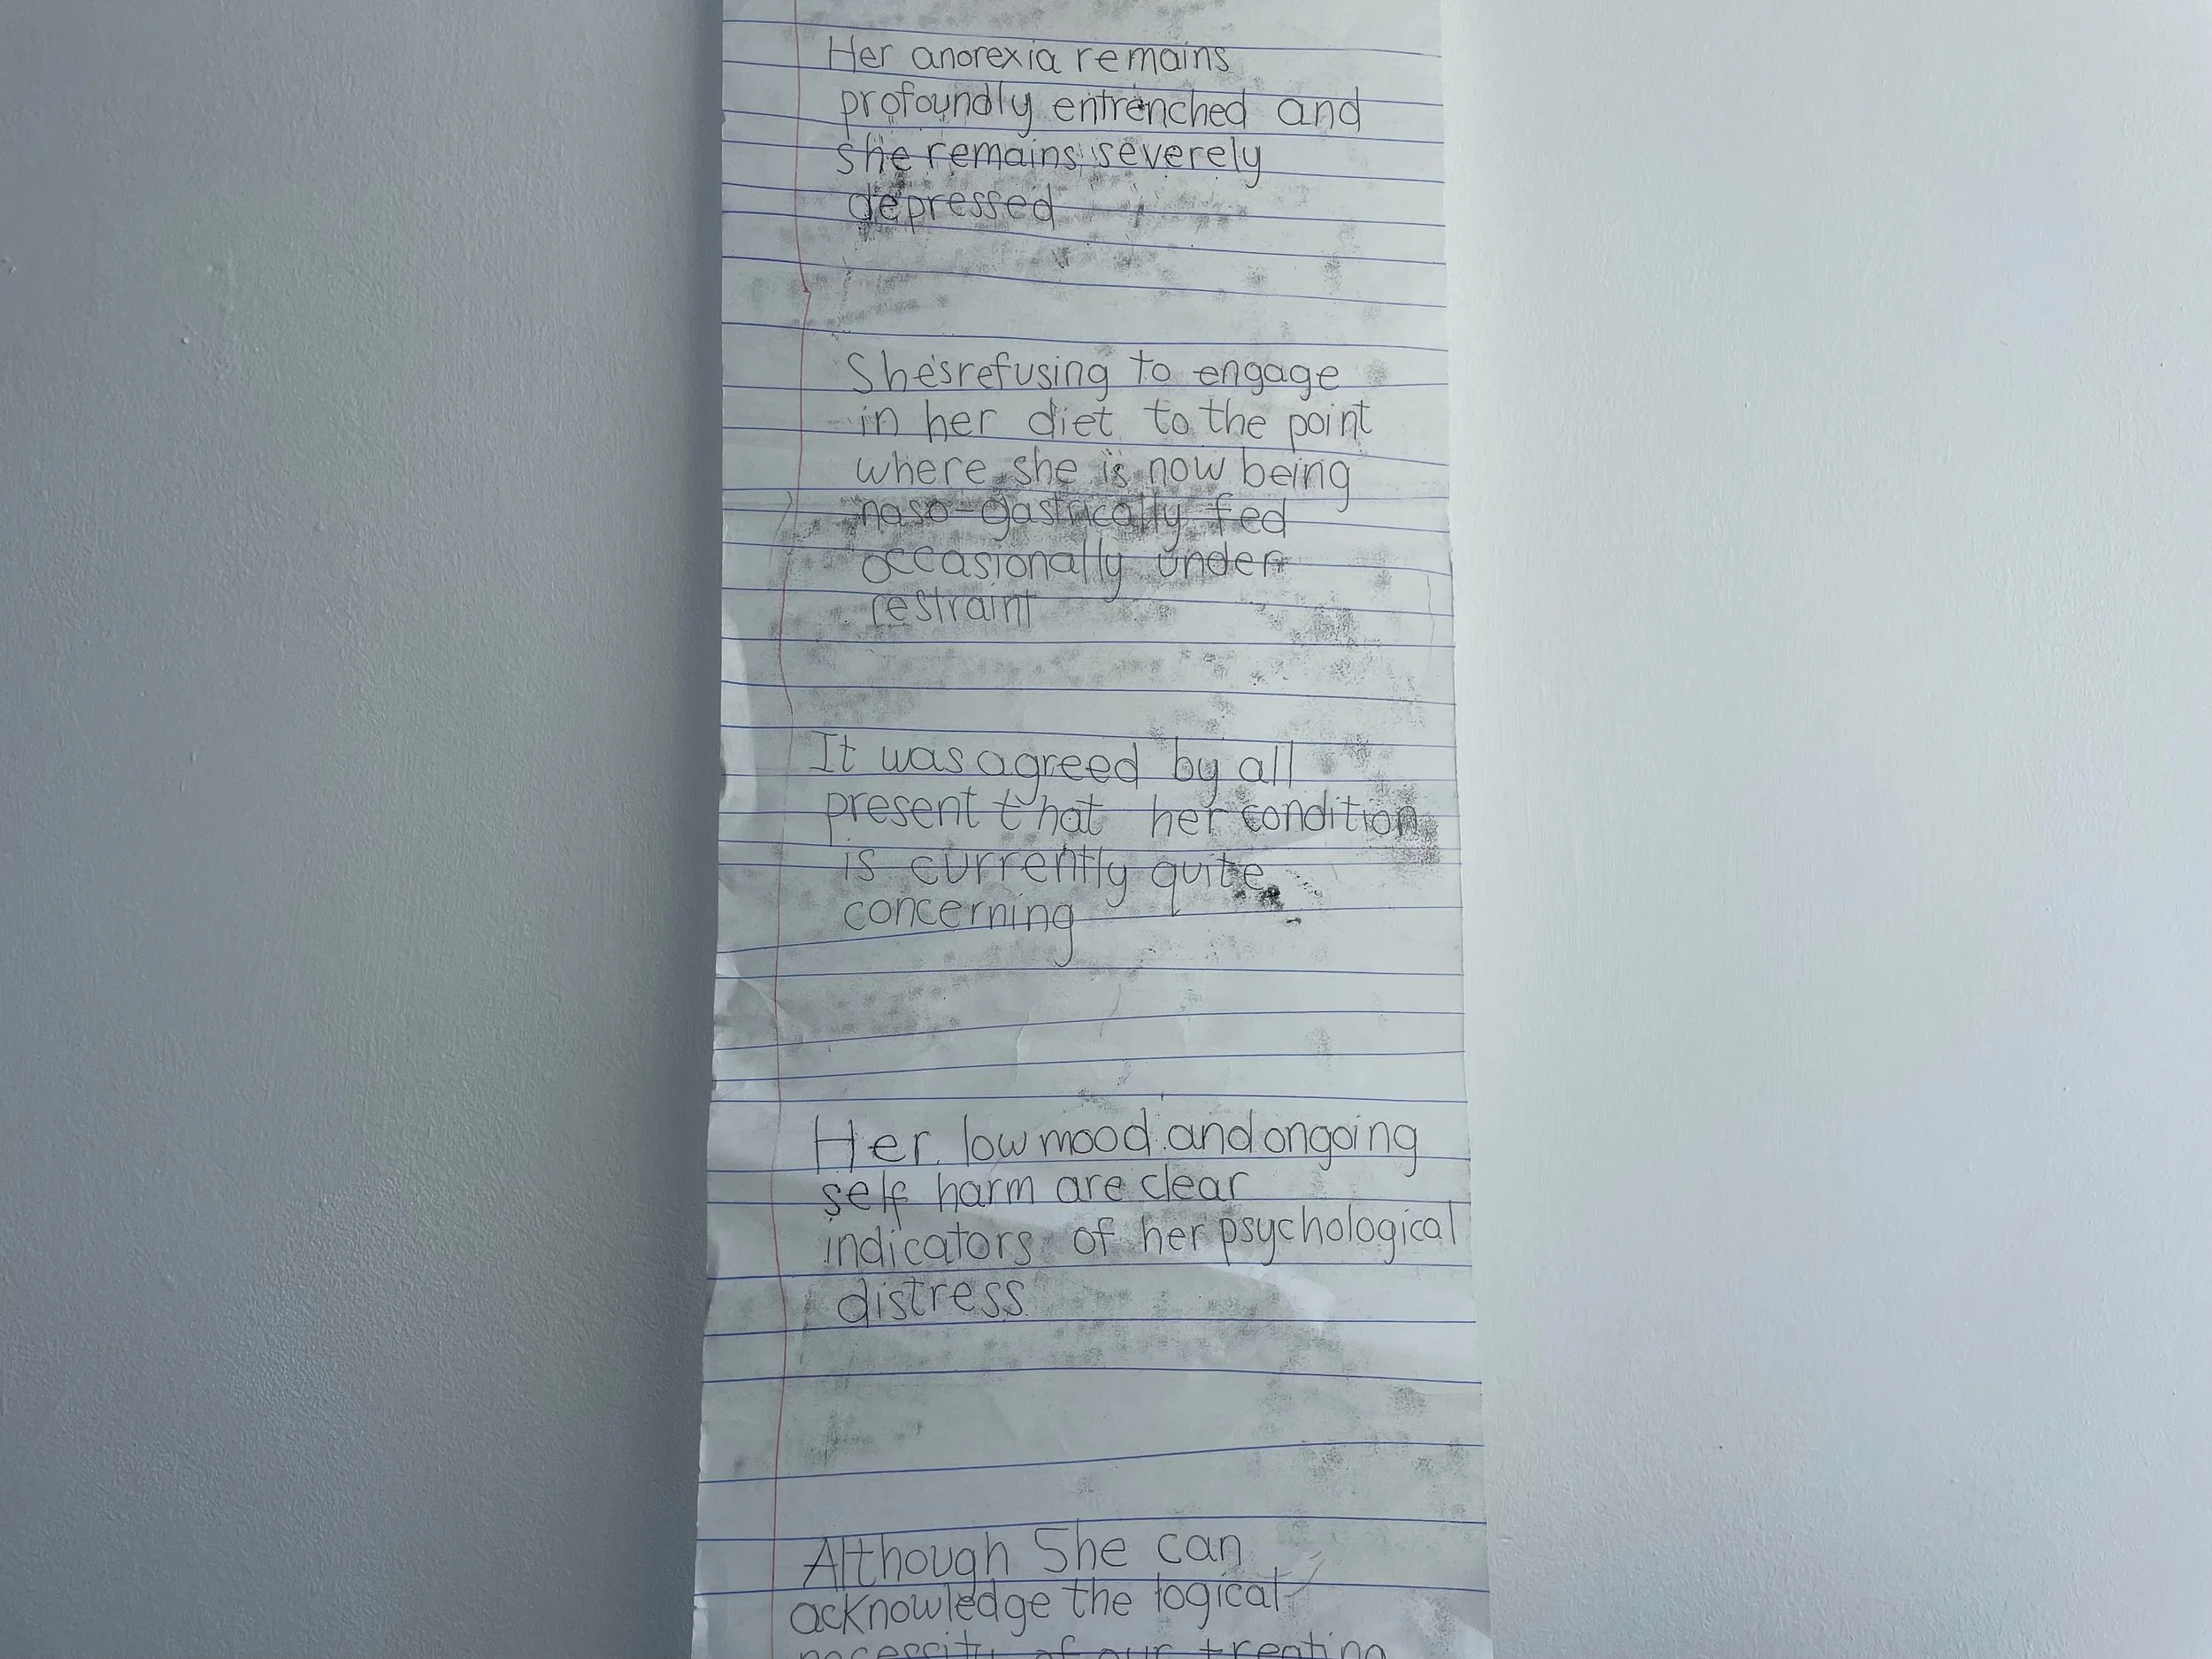 Her anorexia remains
profoundly entrenched and
she remains severely
depressed
She's refusing to engage
in her diet to the point
where she is now being
naso-gastrically fed
occasionally under
restraint
It was agreed by all
present that her condition
is currently quite
concerning
Her low mood and ongoing
self harm are clear
indicators of her psychological
distress
Although She can
acknowledge the logical
necessity of our treating